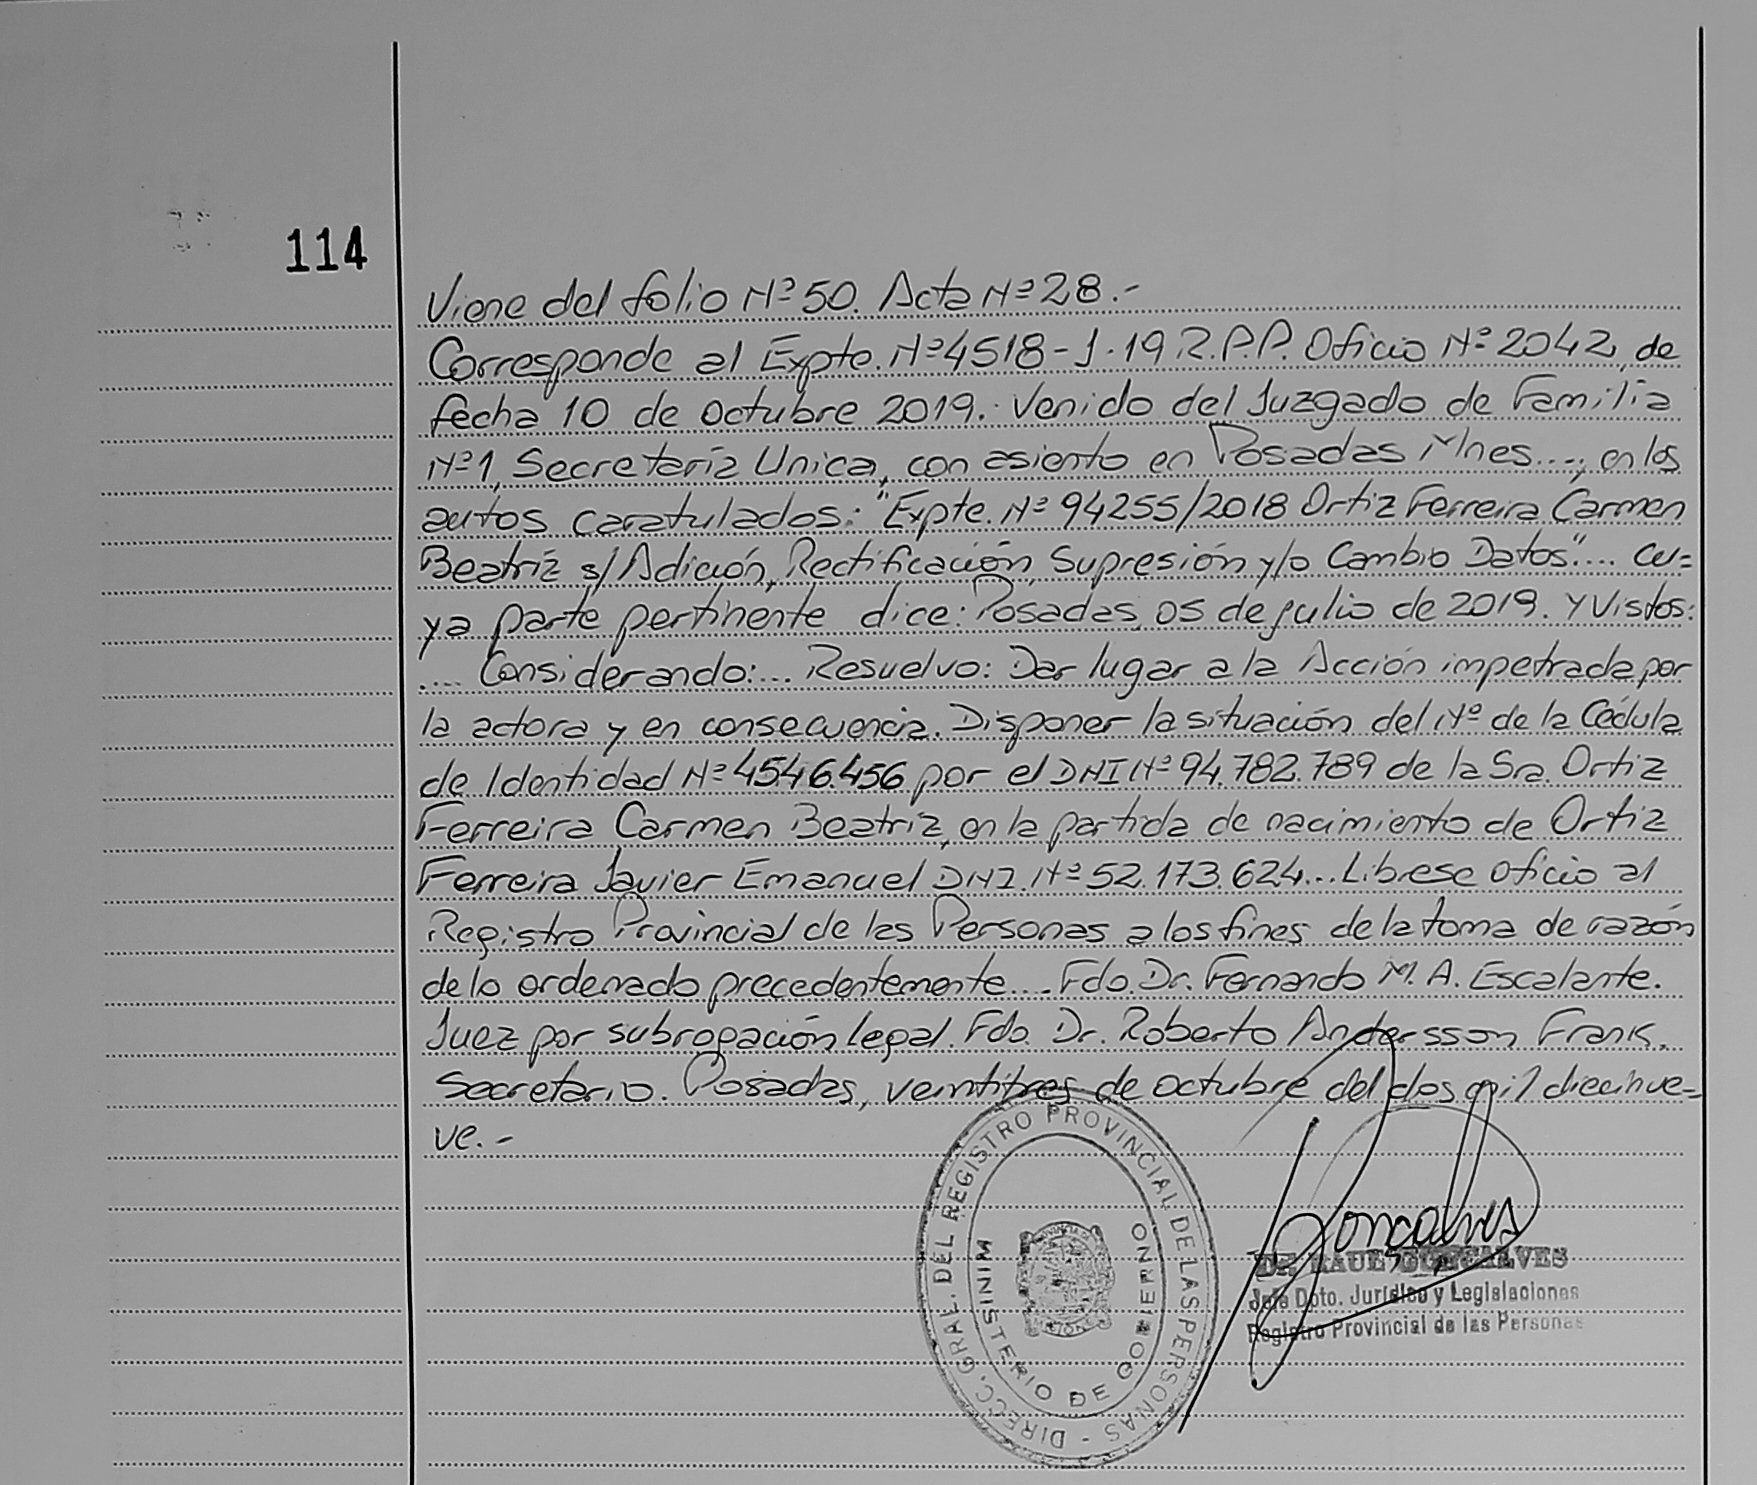 114
Viene del folio Nº 50. Acta Nº 28.-
Corresponde al Expte. Nº 4518-J-19 R.P.P. Oficio Nº 2042, de
fecha 10 de octubre 2019.- Venido del Juzgado de Familia
Nº 1, Secretaría Unica, con asiento en Posadas Mnes...., en los
autos caratulados: "Expte. Nº 94255/2018 Ortiz Ferreira Carmen
Beatriz s/ Adición, Rectificación, Supresión y/o Cambio Datos".... cu=
ya parte pertinente dice: Posadas, 05 de julio de 2019. Y Vistos:
.... Considerando:... Resuelvo: Dar lugar a la Acción impetrada por
la actora y en consecuencia. Disponer la situación del Nº de la Cédula
de Identidad Nº 4546.456 por el DNI Nº 94.782.789 de la Sra. Ortiz
Ferreira Carmen Beatriz, en la partida de nacimiento de Ortiz
Ferreira Javier Emanuel DNI. Nº 52.173.624... Librese oficio al
Registro Provincial de las Personas a los fines de la toma de razón
de lo ordenado precedentemente.... Fdo. Dr. Fernando M. A. Escalante.
Juez por subrogación legal. Fdo. Dr. Roberto Andersson Frank.
Secretario. Posadas, veintitres de octubre del dos mil diecinue=
ve.-
DIRECC. GRAL. DEL REGISTRO PROVINCIAL DE LAS PERSONAS -
MINISTERIO DE GOBIERNO
Goncalves
DR. RAUL GONCALVES
Jefe Dpto. Jurídico y Legislaciones
Registro Provincial de las Personas